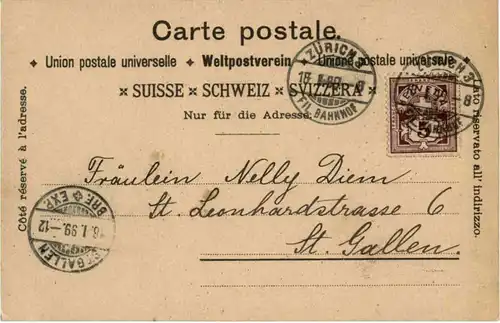 Carte postale.
✦ Union postale universelle ✦ Weltpostverein ✦ Unione postale universale ✦
× SUISSE × SCHWEIZ × SVIZZERA ×
Nur für die Adresse
Côté réservé à l'adresse.
Lato riservato all' indirizzo.
ZÜRICH 3
FIL. BAHNHOF
5
Fräulein Nelly Diem
St. Leonhardstrasse 6
St. Gallen.
ST. GALLEN
BRF. EXP.
16.I.99.-12